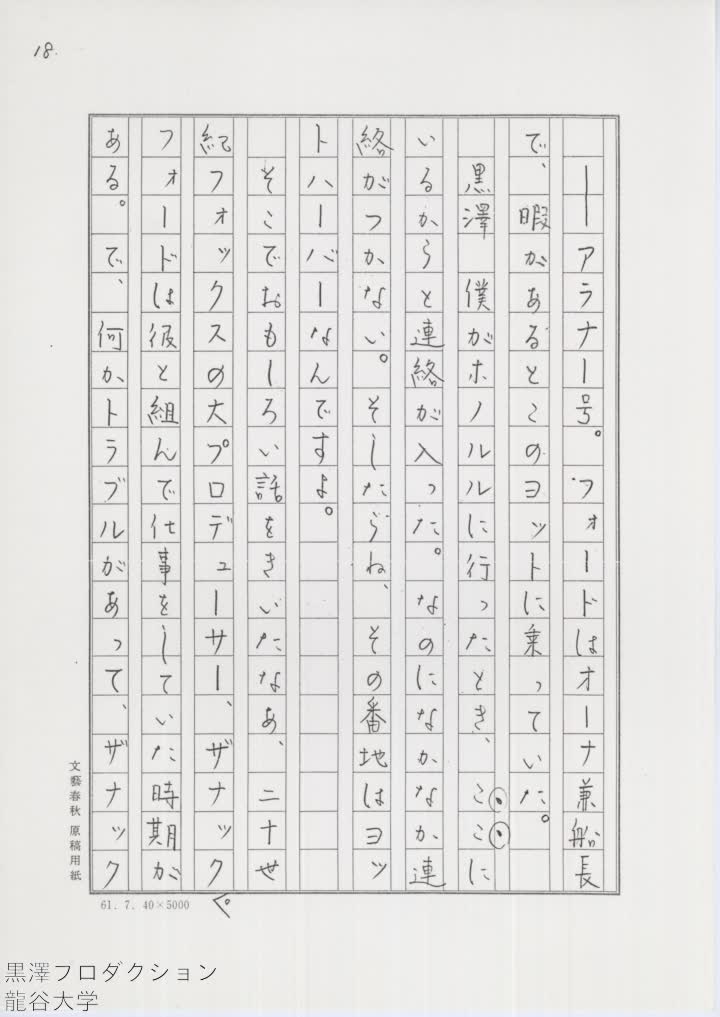 18.
――アラナー号。フォードはオーナ兼船長
で、暇があるとこのヨットに乗っていた。
黒澤　僕がホノルルに行ったとき、ここに
いるからと連絡が入った。なのになかなか連
絡がつかない。そしたらね、その番地はヨッ
トハーバーなんですよ。
そこでおもしろい話をきいたなあ、二十世
紀フォックスの大プロデューサー、ザナック
フォードは彼と組んで仕事をしていた時期が
ある。で、何かトラブルがあって、ザナック
文藝春秋 原稿用紙
61. 7. 40×5000
黒澤プロダクション
龍谷大学